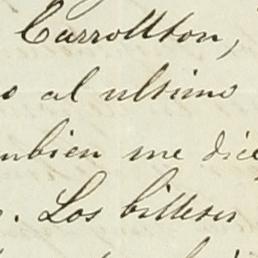 Carrollton,
o al ultimo
mbien me dice
. Los billetes